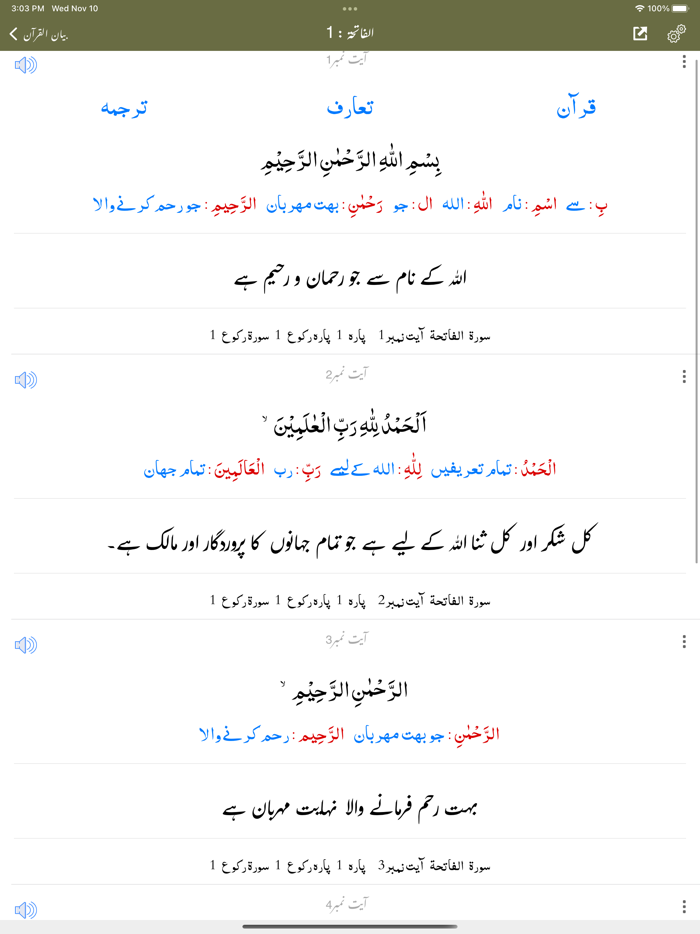 3:03 PM Wed Nov 10 100%
بیان القرآن الفاتحۃ : 1
آیت نمبر1
قرآن تعارف ترجمه
بِسْمِ اللّٰهِ الرَّحْمٰنِ الرَّحِيْمِ
بِ: سے اسْمِ: نام اللّٰهِ: الله ال: جو رَحْمٰنِ: بهت مهربان الرَّحِيمِ: جو رحم کرنے والا
اللہ کے نام سے جو رحمان و رحیم ہے
سورۃ الفاتحۃ آیت نمبر1 پارہ 1 پارہ رکوع 1 سورۃ رکوع 1
آیت نمبر2
اَلْحَمْدُ لِلّٰهِ رَبِّ الْعٰلَمِيْنَ ۙ
الْحَمْدُ: تمام تعریفیں لِلّٰهِ: الله کے لیے رَبِّ: رب الْعَالَمِينَ: تمام جهان
کل شکر اور کل ثنا اللہ کے لیے ہے جو تمام جہانوں کا پروردگار اور مالک ہے۔
سورۃ الفاتحۃ آیت نمبر2 پارہ 1 پارہ رکوع 1 سورۃ رکوع 1
آیت نمبر3
الرَّحْمٰنِ الرَّحِيْمِ ۙ
الرَّحْمٰنِ: جو بهت مهربان الرَّحِيم: رحم کرنے والا
بہت رحم فرمانے والا نہایت مہربان ہے
سورۃ الفاتحۃ آیت نمبر3 پارہ 1 پارہ رکوع 1 سورۃ رکوع 1
آیت نمبر4